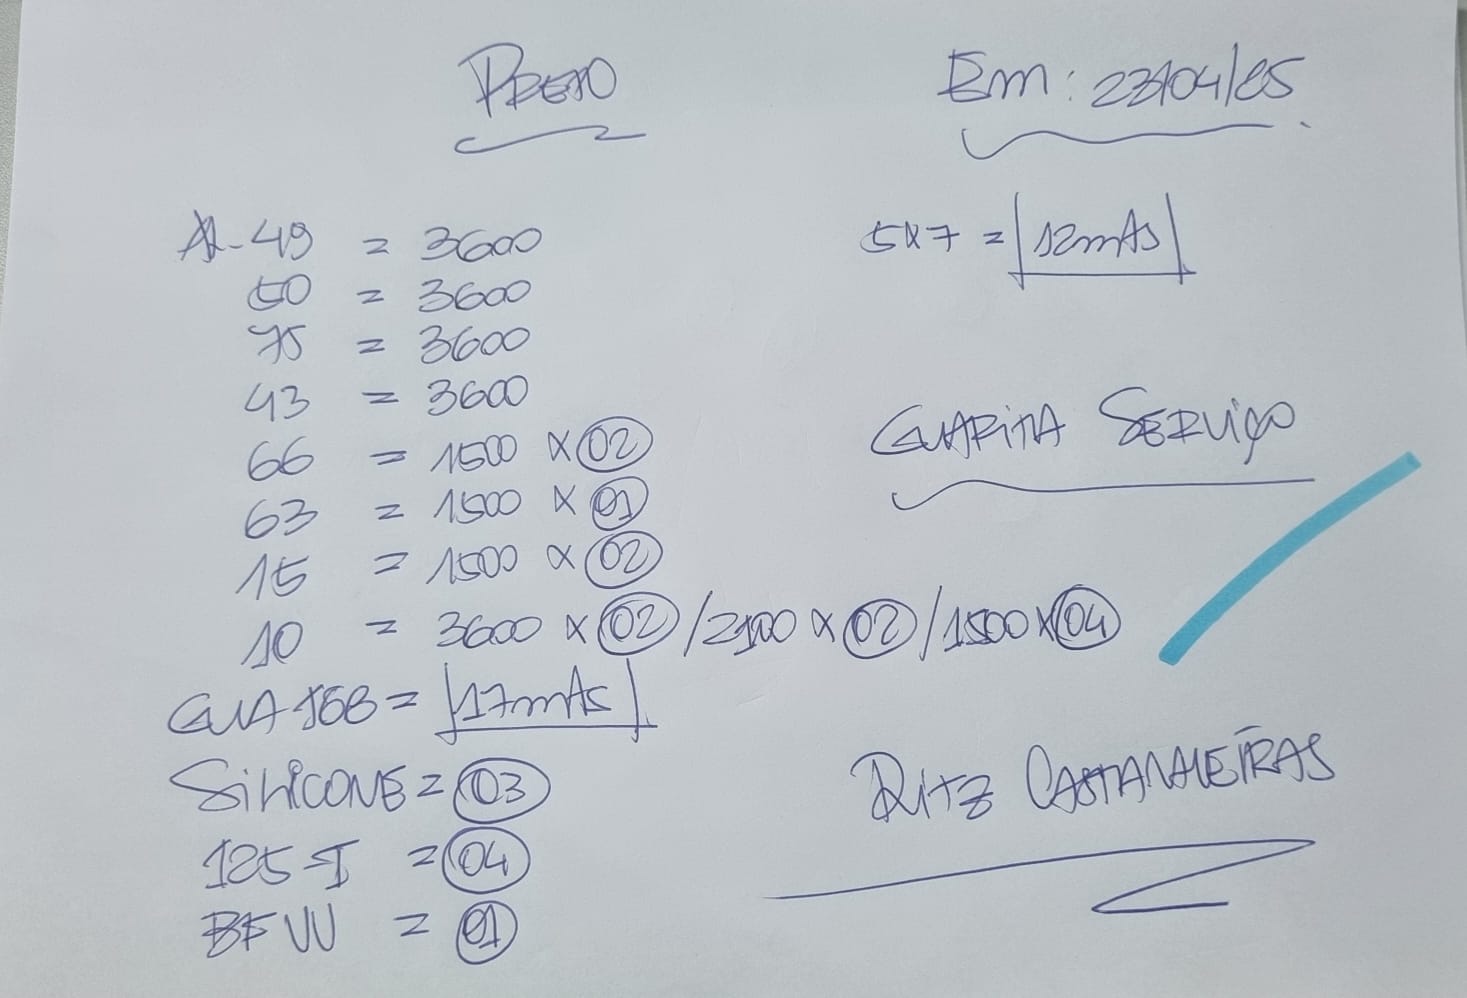 PRETO
Em: 23/04/25
AL-49 = 3600
50 = 3600
75 = 3600
43 = 3600
66 = 1500 x 02
63 = 1500 x 01
15 = 1500 x 02
10 = 3600 x 02 / 2100 x 02 / 1500 x 04
GUA 168 = 17mts
SiliCONE = 03
125-I = 04
BF VU = 01
5x7 = 12mts
GUARitA SERViço
Ritz CASTANHEIRAS